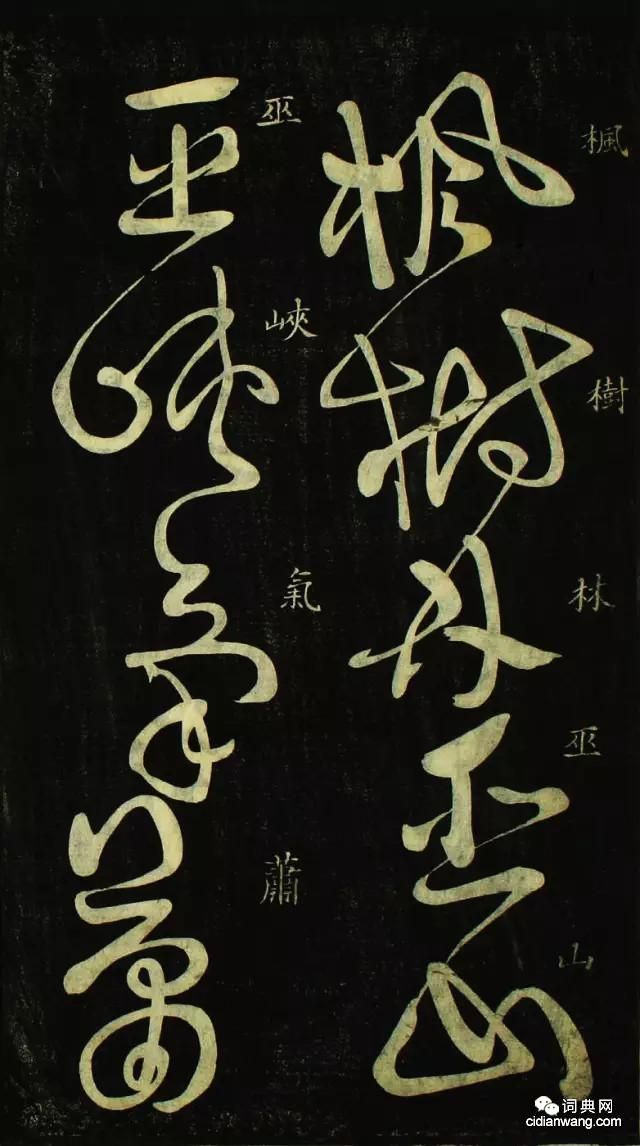 楓樹林巫山
巫峽氣蕭
词典网
cidianwang.com